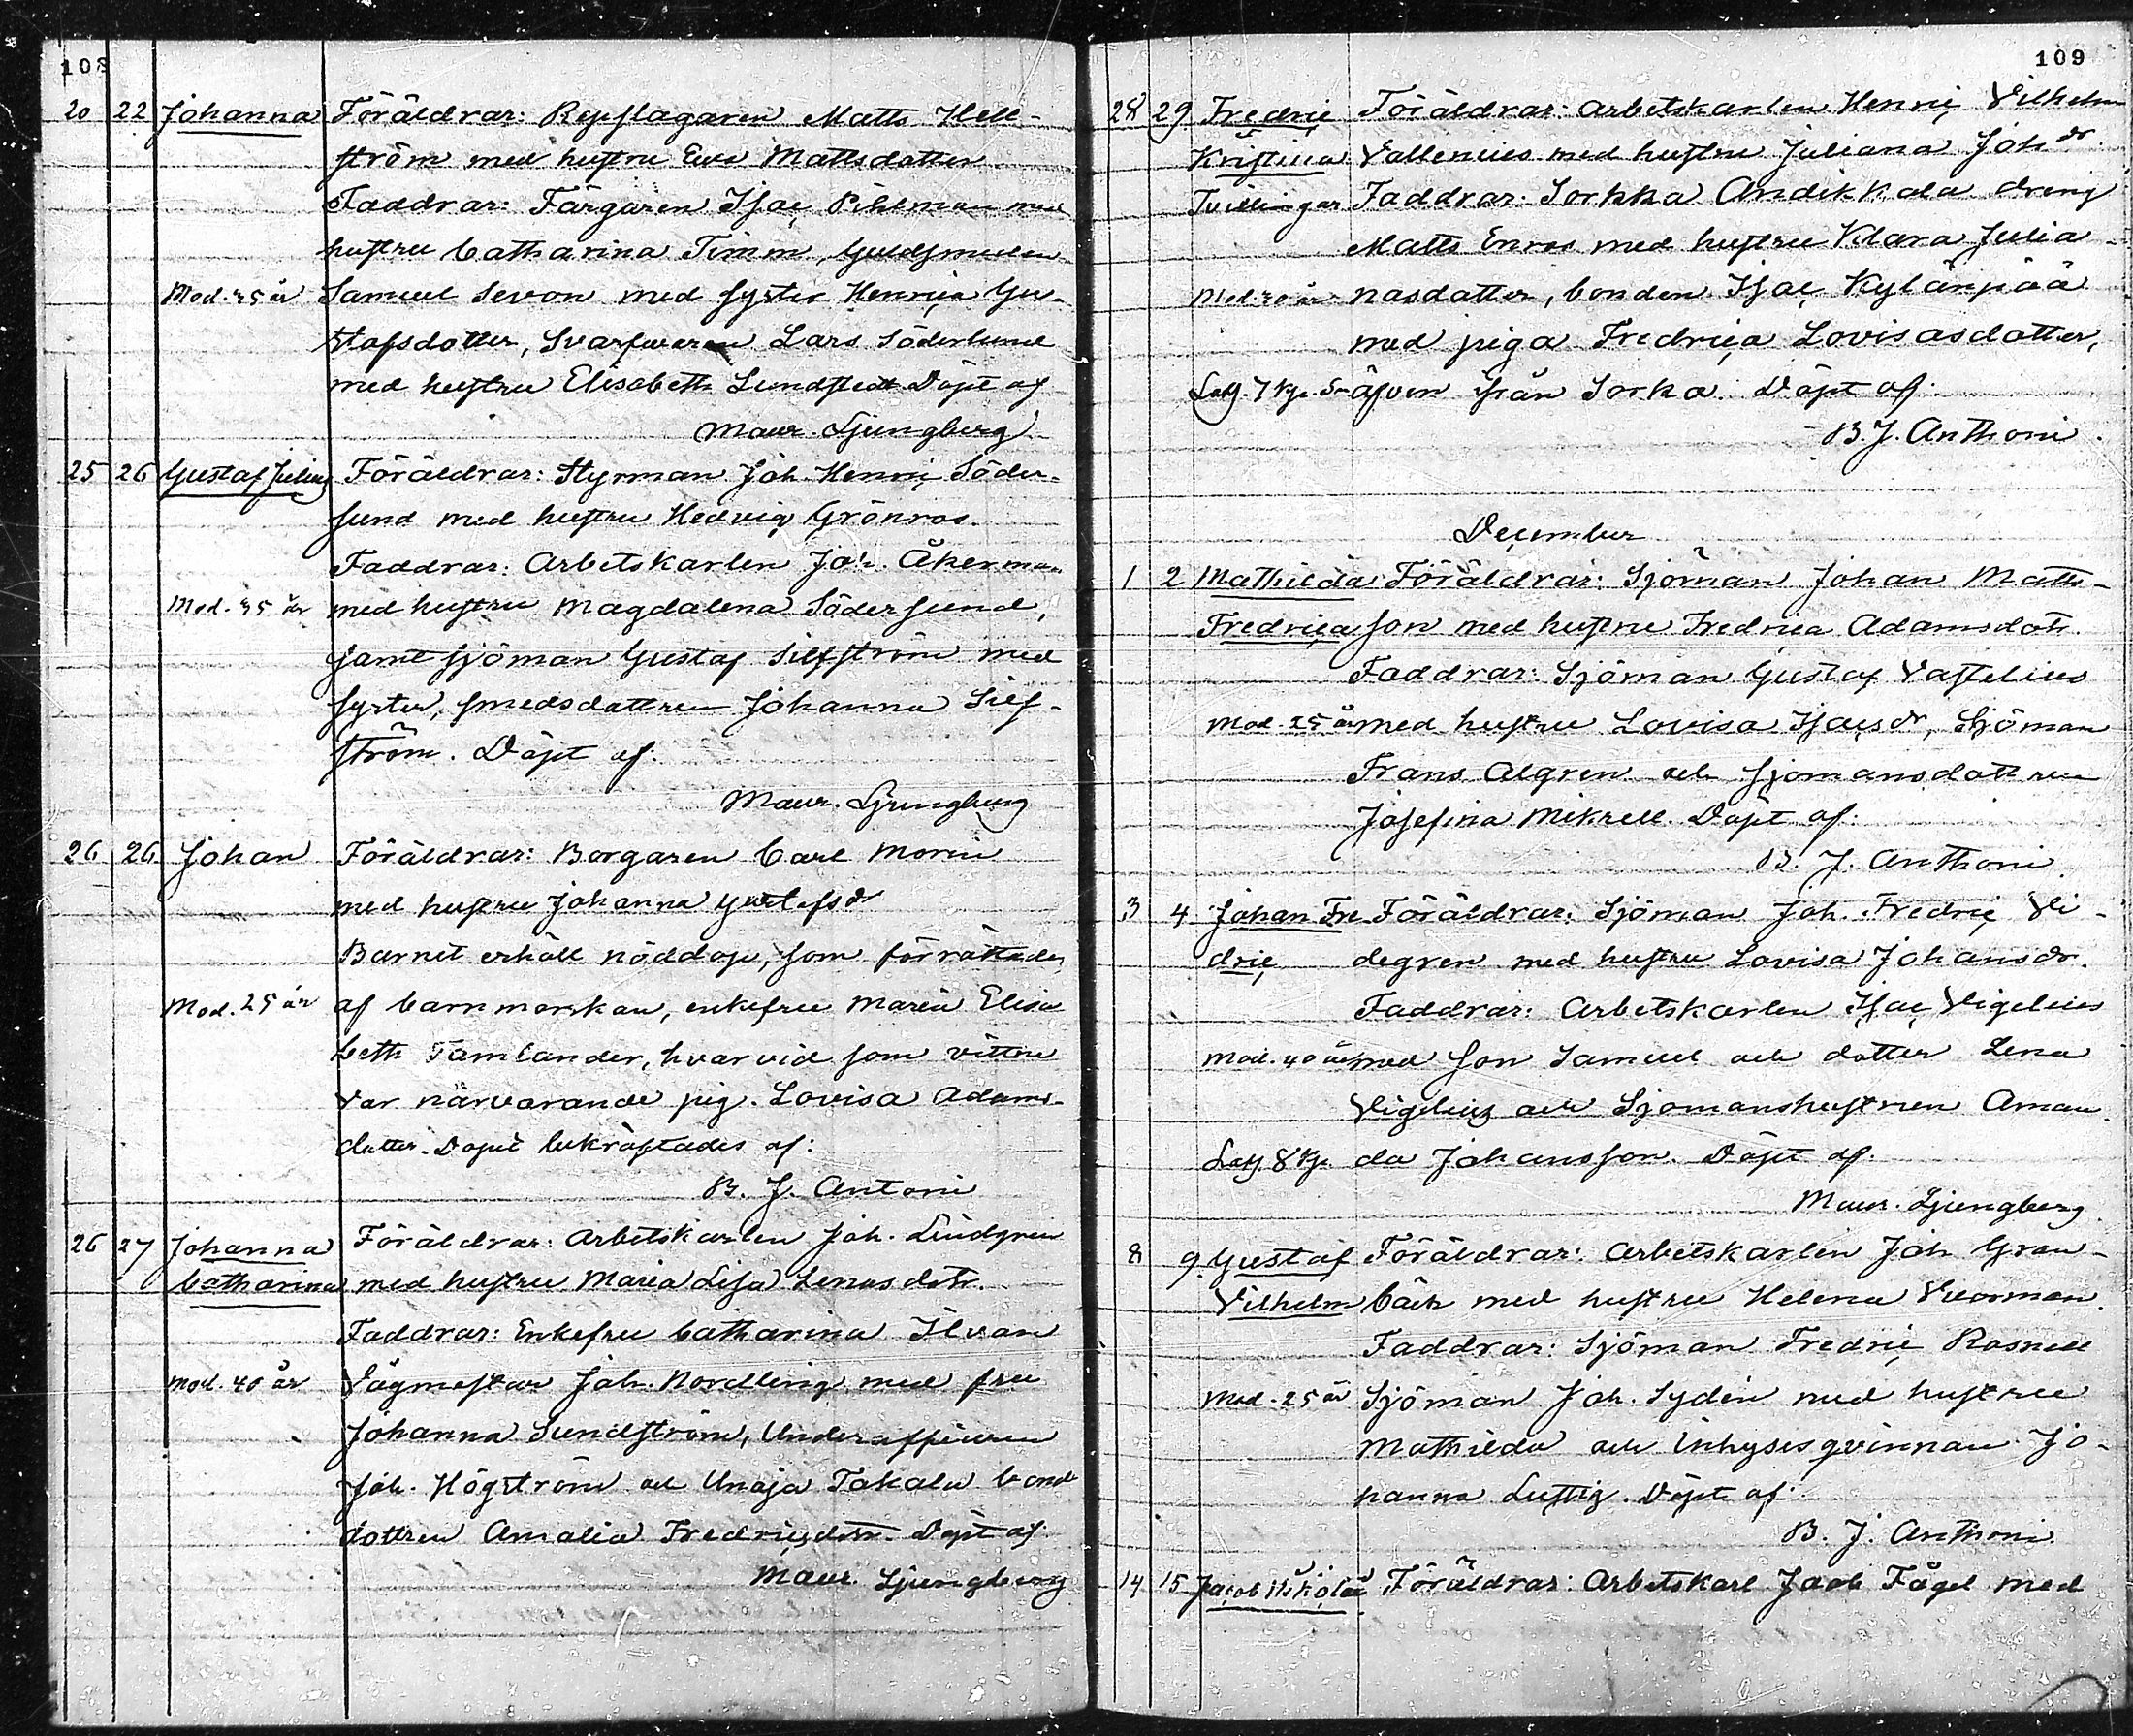 108
20 22 Johanna Föräldrar: Repslagaren Matts Hell-
ström med hustru Eva Mattsdotter
Faddrar: Färgaren Isac Pihlman med
hustru Catharina Timm, Guldsmeden
Mod. 45 år Samuel Sevon med syster Henrica Gu-
stafsdotter, Svarfvaren Lars Söderlund
med hustru Elisabeth Lundstedt Döpt af
Maur. Ljungberg
25 26 Gustaf Julius Föräldrar: Styrman Joh. Henric Söder-
sund med hustru Hedvig Grönroos.
Faddrar: Arbetskarlen Joh. Åkerman
Mod. 35 år med hustru Magdalena Södersund,
samt sjöman Gustaf Silfström med
syster, smedsdottren Johanna Silf-
ström. Döpt af.
Maur. Ljungberg
26 26 Johan Föräldrar: Borgaren Carl Morin
med hustru Johanna Gustafsdr
Barnet erhöll nöddop, som förrättades
Mod. 25 år af barnmorskan, enkefru Maria Elisa
beth Tamlander, hvarvid som vittne
var närvarande pig. Lovisa Adams-
dotter. Dopet bekräftades af:
B. J. Antoni
26 27 Johanna Föräldrar: Arbetskarlen Joh. Lindgren
Catharina med hustru Maria Lisa Lenasdotr.
Faddrar: Enkefru Catharina Ilvan
Mod. 40 år Vågmästar Joh. Nordling med fru
Johanna Sundström, Underofficeren
Joh. Högström och Unaja Takala bond
dottren Amalia Fredricsdotr. Döpt af
Maur. Ljungberg
109
28 29 Fredric Föräldrar: Arbetskarlen Henric Vilhelm
Kristina Vallenius med hustru Juliana Johdr
Tvillingar Faddrar: Sorkka Andikkala dreng
Matts Enroos med hustru Klara Julia-
Mod 40 år nasdotter, bonden Isac Kylänpää
med piga Fredrica Lovisasdotter,
äfven från Sorka. Döpt af.
B. J. Anthoni.
December
1 2 Mathilda Föräldrar: Sjöman Johan Matts-
Fredrica son med hustru Fredrica Adamsdotr.
Faddrar: Sjöman Gustaf Vastelius
Mod. 25 år med hustru Lovisa Isacsdr, Sjöman
Frans Algren och sjömansdottren
Josefina Mikrell. Döpt af:
B. J. Anthoni.
3 4 Johan Fre Föräldrar: Sjöman Joh. Fredric Vi-
dric degren med hustru Lovisa Johansdr.
Faddrar: Arbetskarlen Isac Vigelius
Mod. 40 år med son Samuel och dotter Lena
Vigelius och Sjömanshustrun Aman
da Johansson. Döpt af.
Maur. Ljungberg
8 9. Gustaf Föräldrar: Arbetskarlen Joh Gran-
Vilhelm bäck med hustru Helena Vuorman.
Faddrar: Sjöman Fredric Rosnell
Mod. 25 år Sjöman Joh. Sydén med hustru
Mathilda och Inhysesqvinnan Jo-
hanna Lustig. Döpt af:
B. J. Anthoni.
14 15 Jacob Nikolai Föräldrar: Arbetskarl Jacob Fågel med